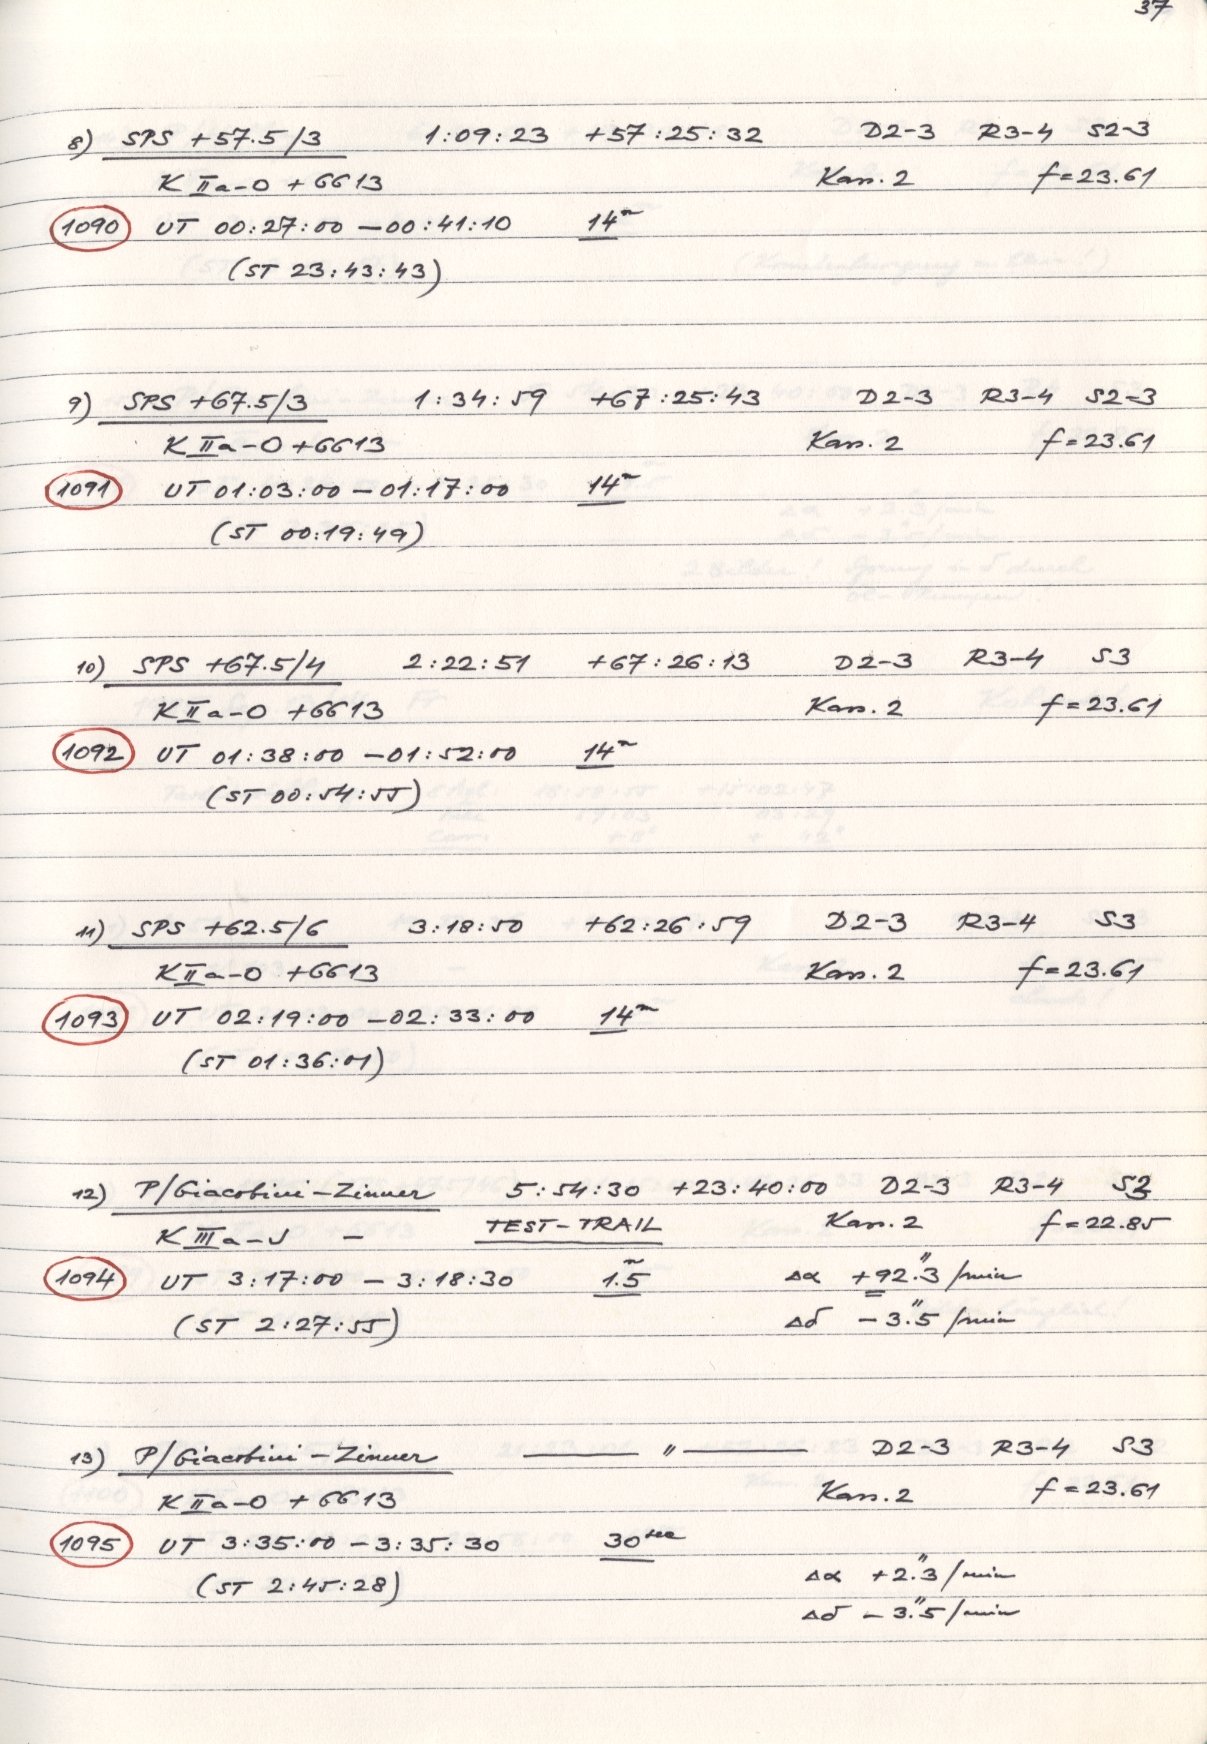 37
8) SPS +57.5/3 1:09:23 +57:25:32 D2-3 R3-4 S2-3
K IIa-O +6613 Kass. 2 f=23.61
1090 UT 00:27:00 - 00:41:10 14m
(ST 23:43:43)
9) SPS +67.5/3 1:34:59 +67:25:43 D2-3 R3-4 S2-3
K IIa-O +6613 Kass. 2 f=23.61
1091 UT 01:03:00 - 01:17:00 14m
(ST 00:19:49)
10) SPS +67.5/4 2:22:51 +67:26:13 D2-3 R3-4 S3
K IIa-O +6613 Kass. 2 f=23.61
1092 UT 01:38:00 - 01:52:00 14m
(ST 00:54:55)
11) SPS +62.5/6 3:18:50 +62:26:59 D2-3 R3-4 S3
K IIa-O +6613 Kass. 2 f=23.61
1093 UT 02:19:00 - 02:33:00 14m
(ST 01:36:01)
12) P/Giacobini-Zinner 5:54:30 +23:40:00 D2-3 R3-4 S2
K IIIa-J - TEST-TRAIL Kass. 2 f=22.85
1094 UT 3:17:00 - 3:18:30 1.5m Δα +92."3 /min
(ST 2:27:55) Δδ -3."5 /min
13) P/Giacobini-Zinner — " — D2-3 R3-4 S3
K IIa-O +6613 Kass. 2 f=23.61
1095 UT 3:35:00 - 3:35:30 30sec
(ST 2:45:28) Δα +2."3 /min
Δδ -3."5 /min